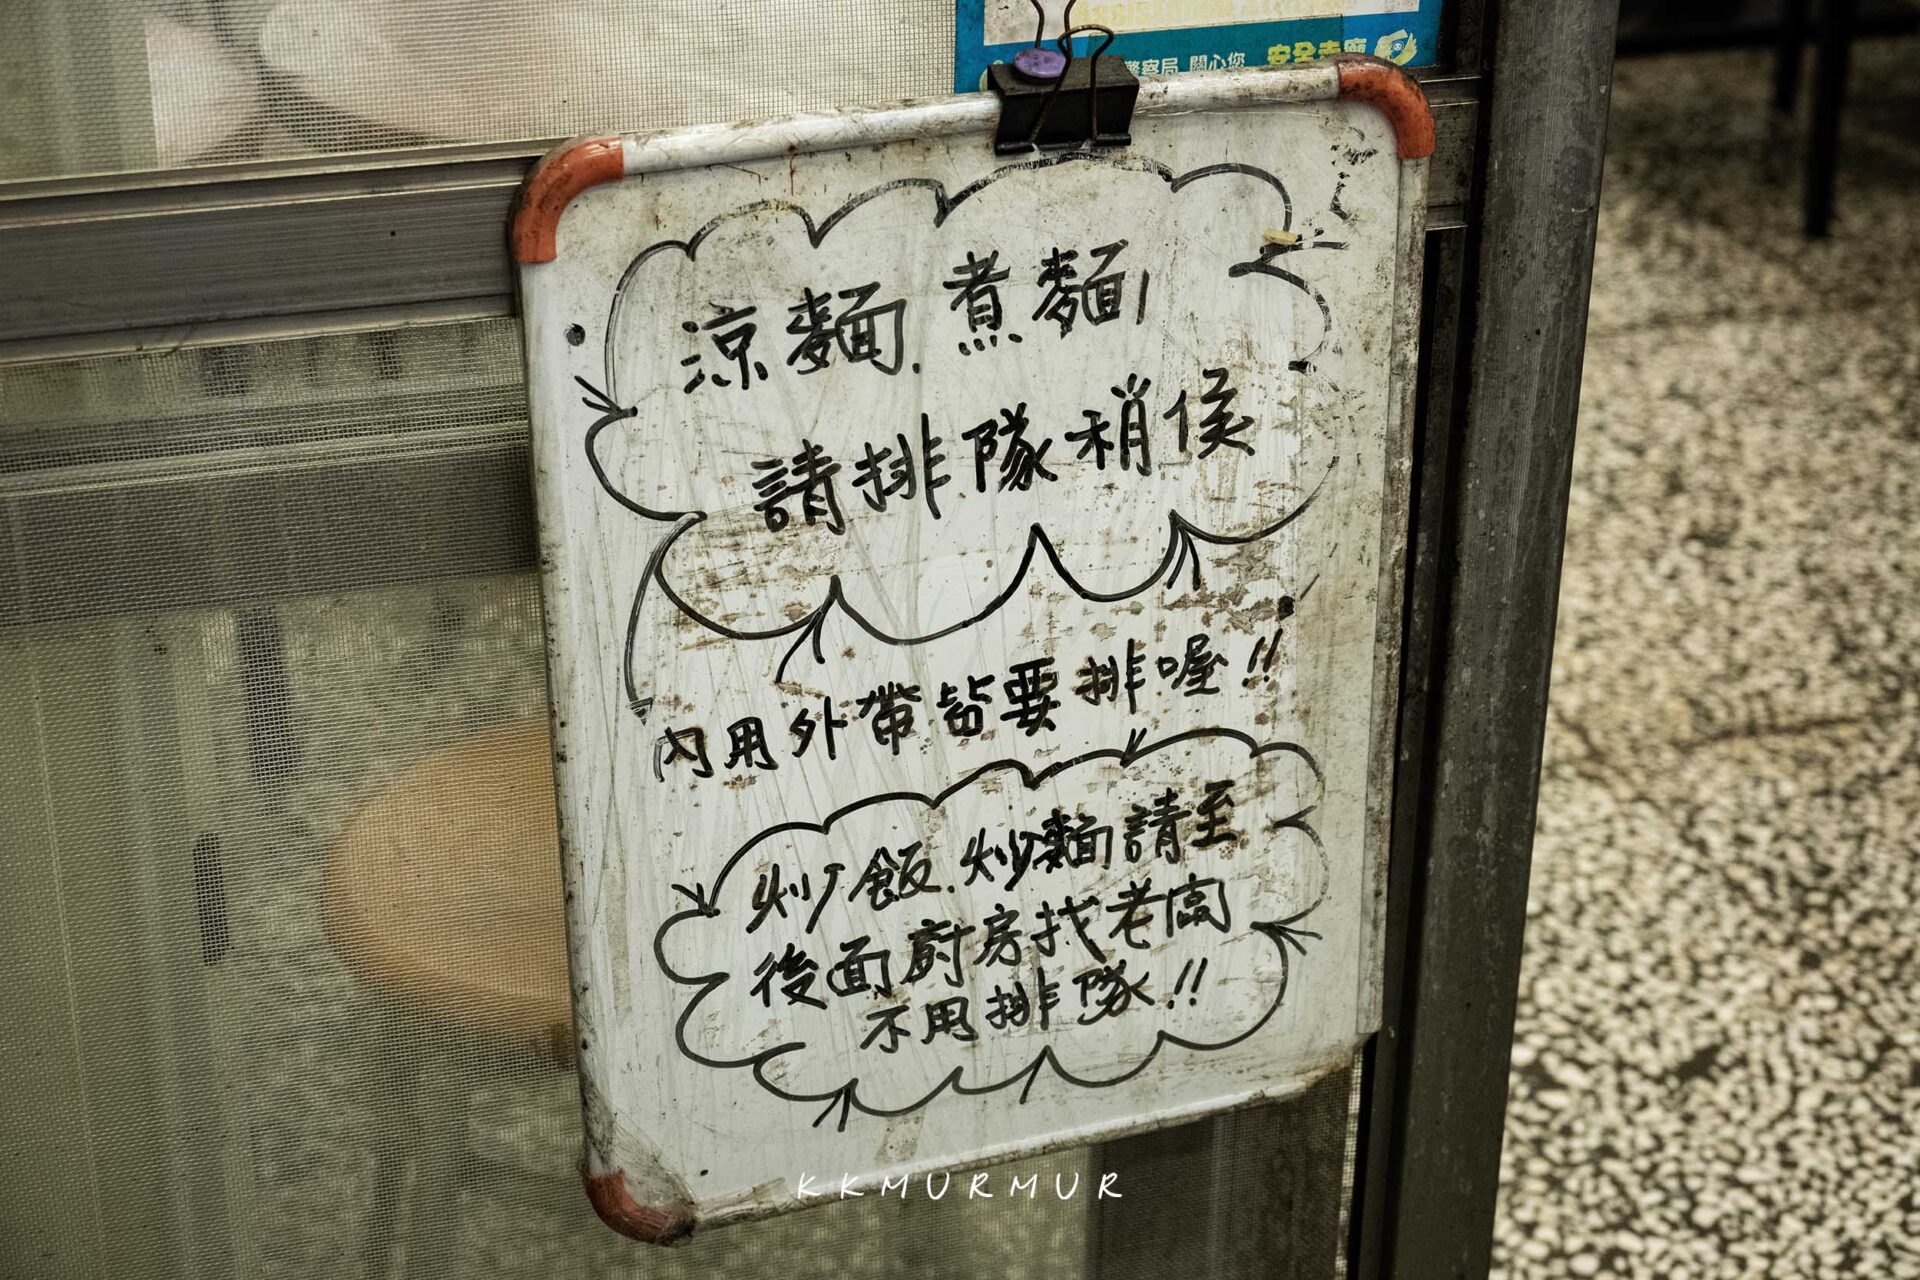 警察局 關心您 安全走廊
涼麵.煮麵
請排隊稍侯
內用外帶皆要排喔!!
炒飯.炒麵請至
後面廚房找老闆
不用排隊!!
KKMURMUR